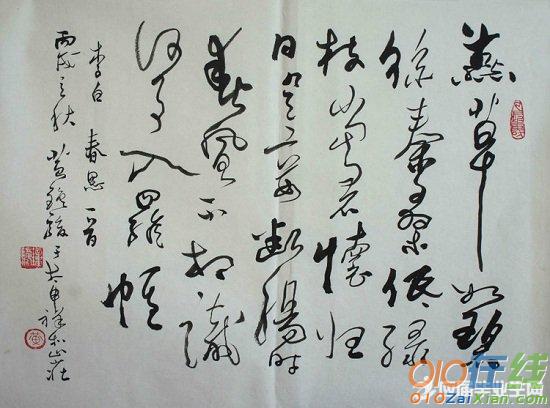 燕草如碧
丝秦桑低绿
枝当君怀归
日是妾断肠时
春风不相识
何事入罗帏
李白 春思 一首
丙戌之秋
010在线
010ZaiXian.com